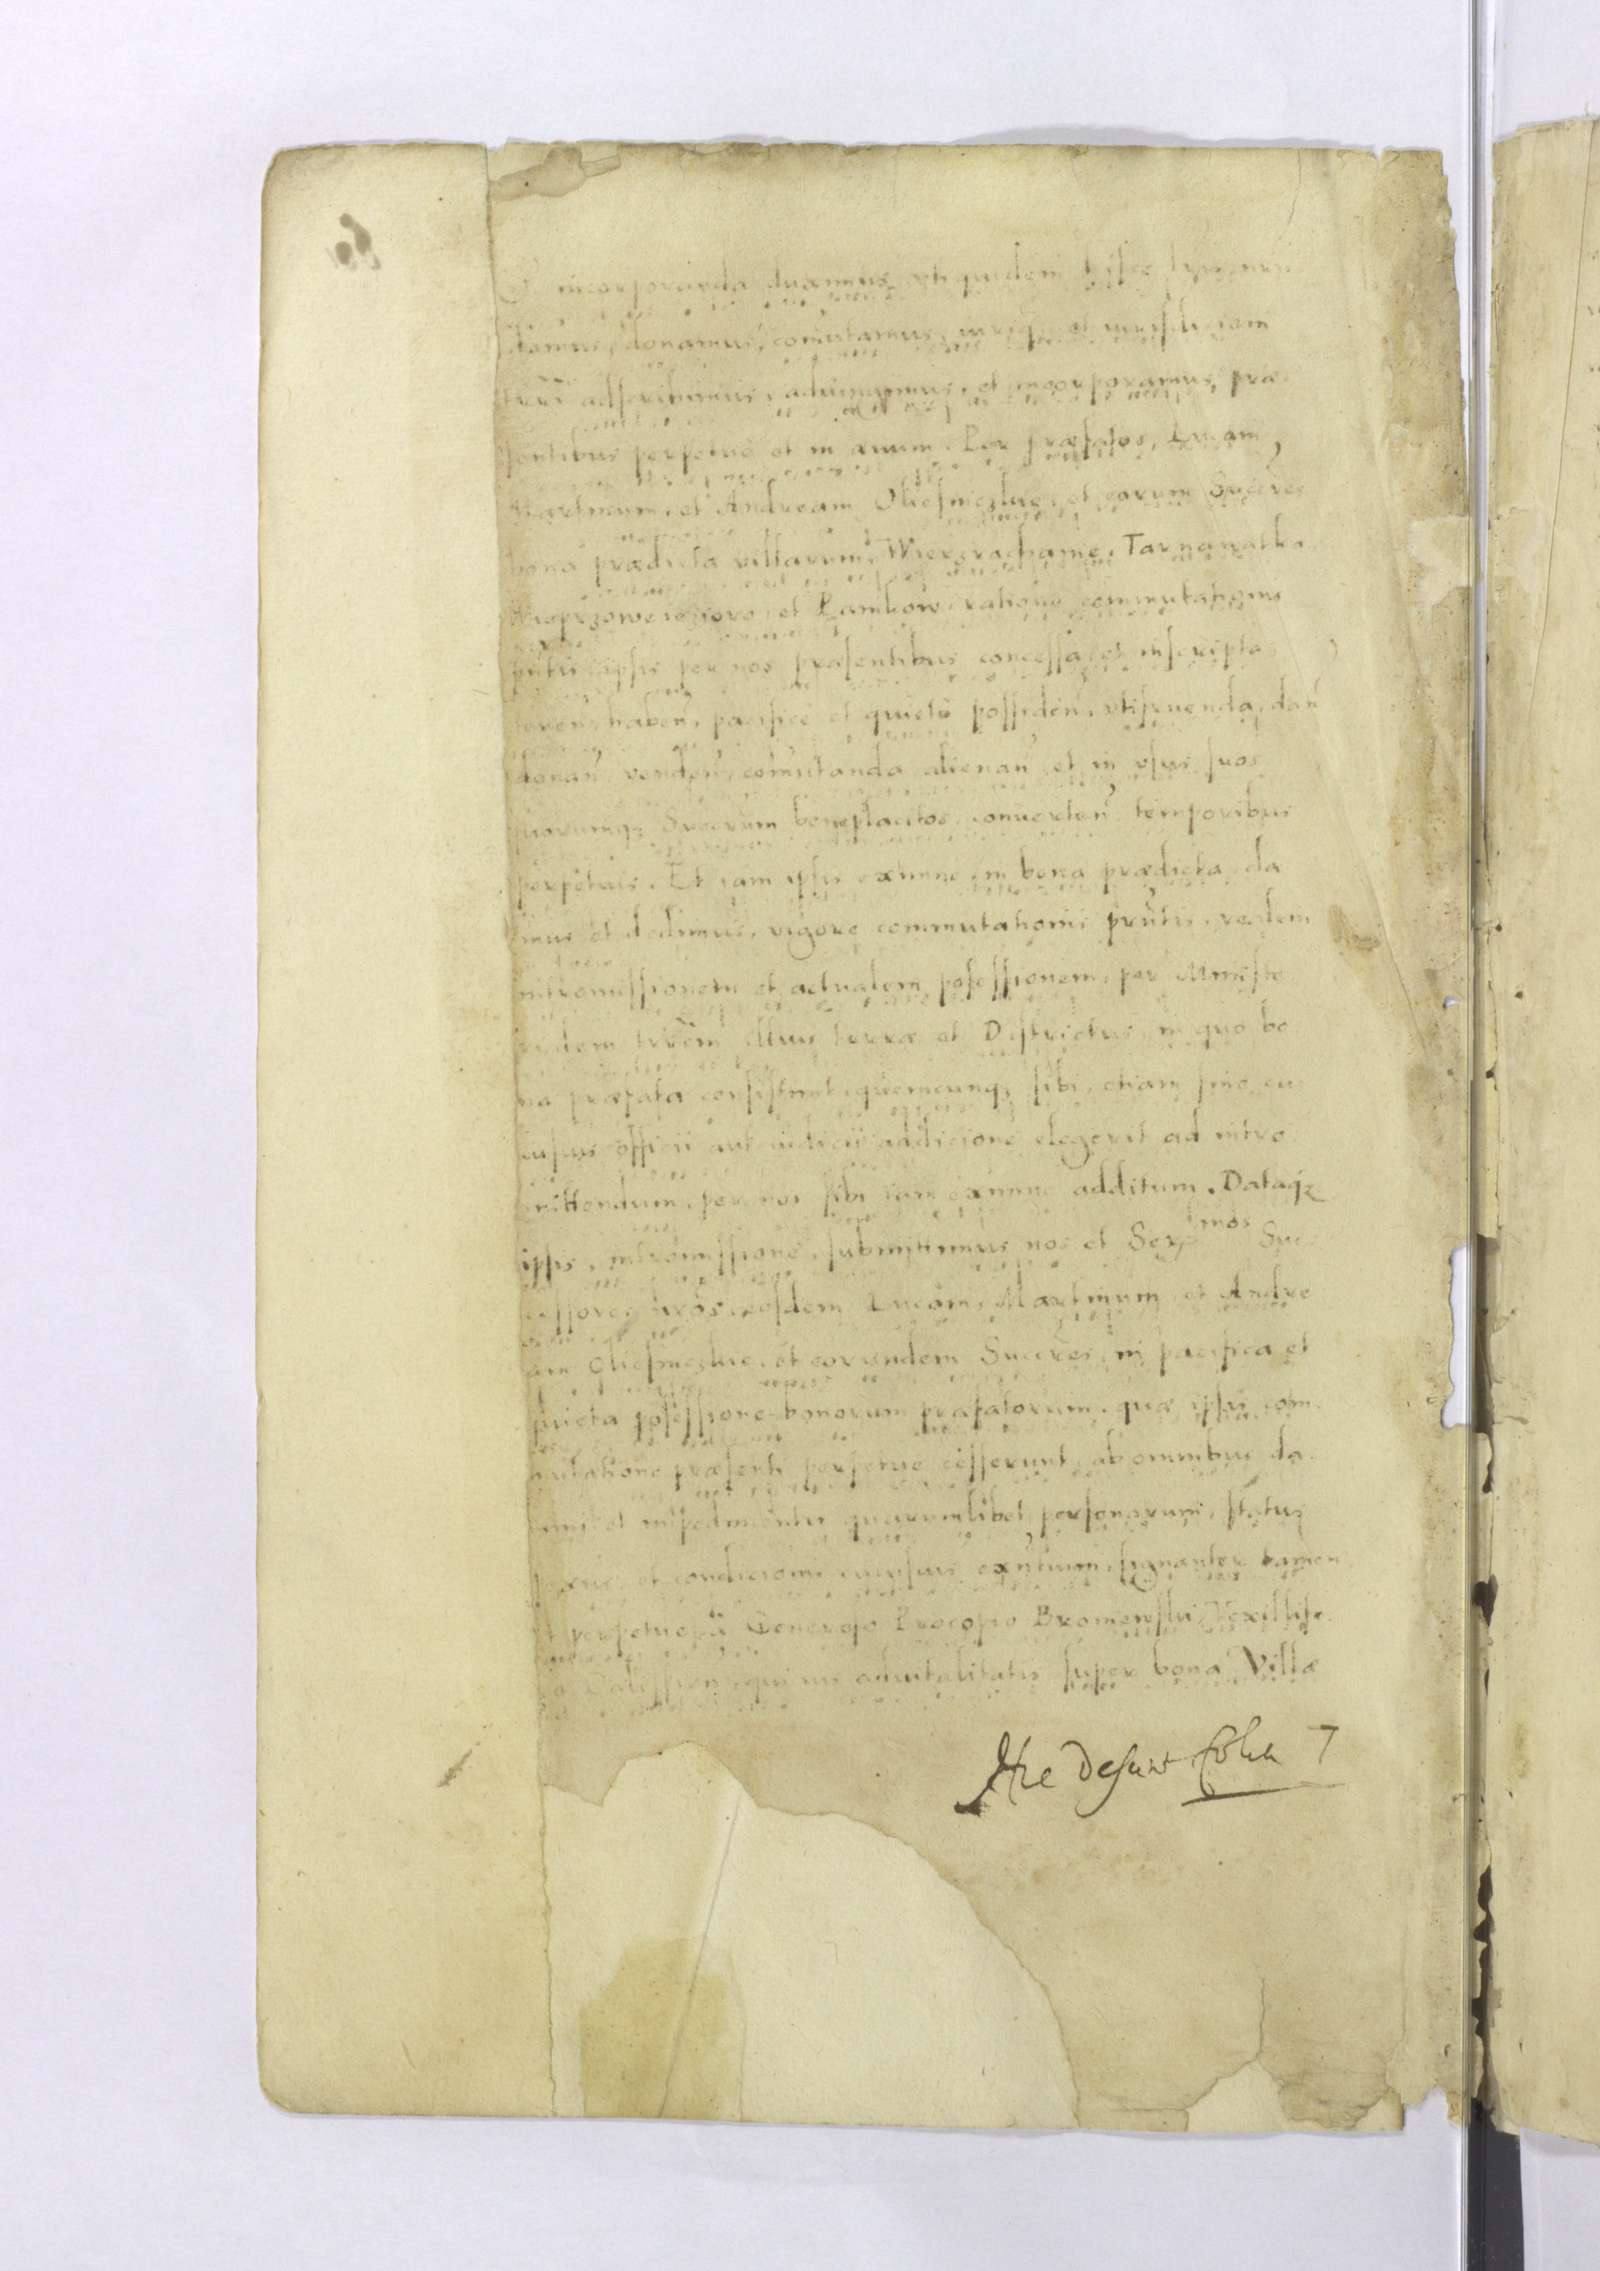 incorporanda duximus uti quidem hisce
damus, donamus, com̃utamus, et
adscribimus, adiungimus, et incorporamus, præ
sentibus perpetuo et in ævum. Per præfatos, Lucam,
Martinum, et Andream Oliesniczkie, et eorum Succres
bona prædicta villarum, Tarnawatka
et ratione commutationis
ipsis per nos præsentibus concessa, et inscripta
tenen̄, haben̄, pacifice et quiete possiden̄, utifruenda, dan̄
donan̄, venden̄, com̃utanda, alienan̄, et in usus suos
suorumq; Succrum beneplacitos, converten̄ temporibus
perpetuis. Et iam ipsis exnunc, in bona prædicta, da
mus et dedimus, vigore commutationis pr̃ntis, realem
intromissionem et actualem possessionem, per Ministe
rialem terræ et Districtus, in quo bo
na præfata consistunt, quemcunq; sibi, etiam sine cu
iusvis officii aut iudicii addicione elegerit ad intro
mittendum, per nos sibi iam exnunc additum. Dataq;
ipsis, intromissione, submittimus nos et Ser̃mos Suc
cessores nr̃os, eosdem Lucam, Martinum, et Andre
am Oliesniczkie, et eorundem Succres, in pacifica et
quieta possessione bonorum præfatorum, quæ ipsis com
mutatione præsenti perpetuo cesserunt, ab omnibus
et impedimentis quarumlibet personarum, status
sexus, et condicionis cuiusvis exn̄tium, signanter tamen
Generoso Procopio Broniewski, Vexillife
ro advitalitatis super bona Villæ
Hic Desunt folia 7